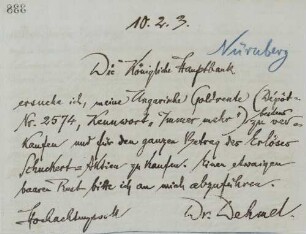 888
10. 2. 3.
Nürnberg
Die Königliche Hauptbank
ersuche ich, meine Ungarische Goldrente (Depôt-
Nr. 2574, Kennwort „Immer mehr") bestens zu ver-
kaufen und für den ganzen Betrag des Erlöses
Schuckert-Aktien zu kaufen. Einen etwaigen
baaren Rest bitte ich an mich abzuführen.
Hochachtungsvoll
Dr. Dehmel.